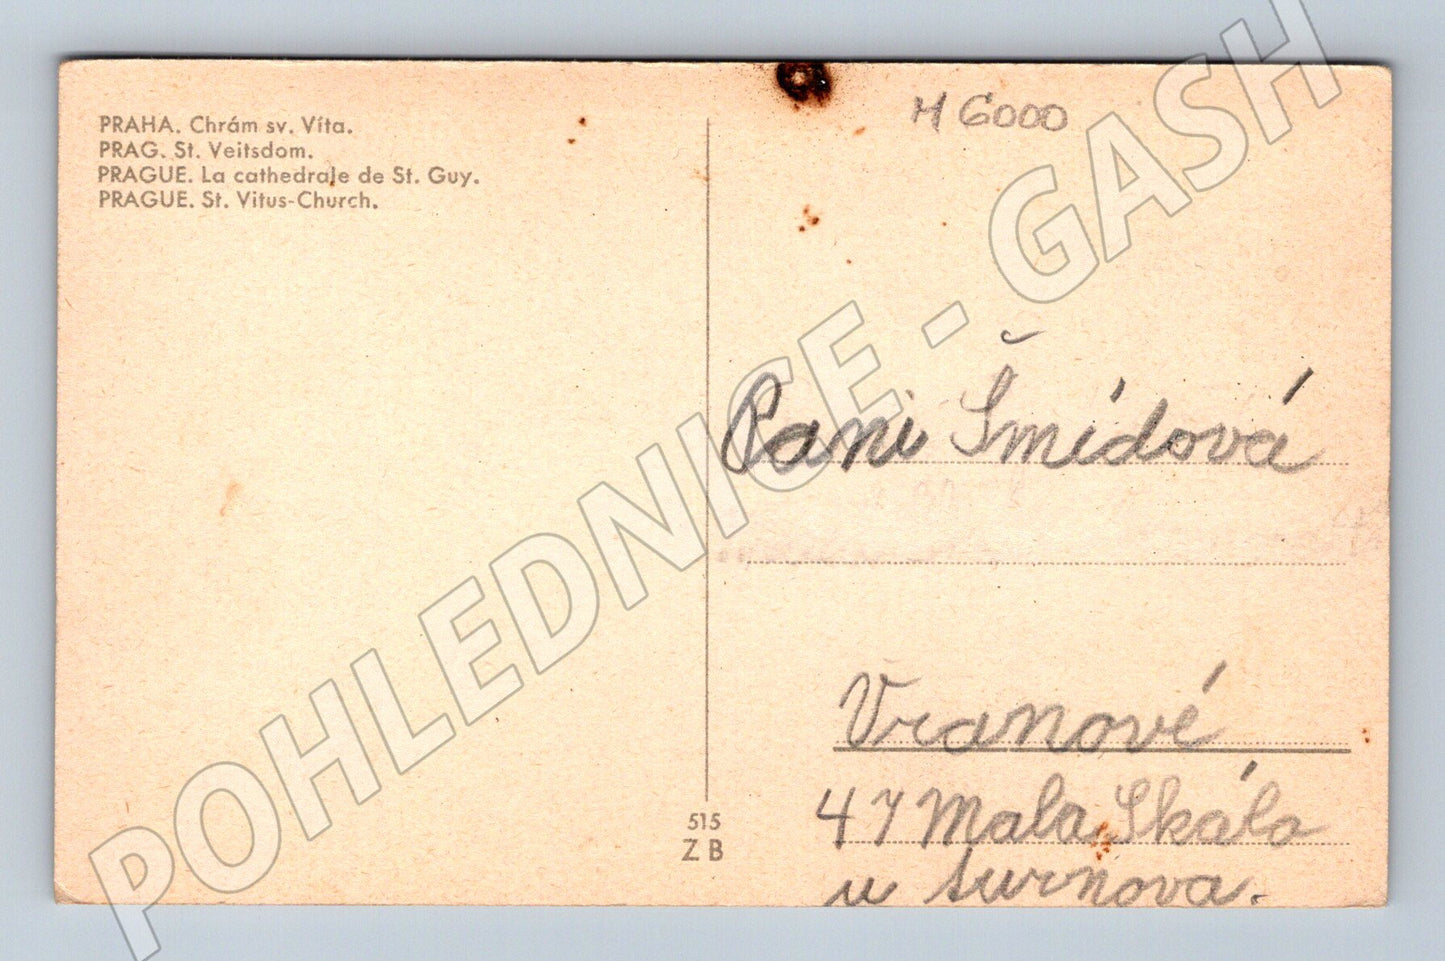 PRAHA. Chrám sv. Víta.
PRAG. St. Veitsdom.
PRAGUE. La cathedrale de St. Guy.
PRAGUE. St. Vitus-Church.
M 6000
Pani Šmídová
Vranové
47 Mala Skála
u turnova.
515
Z B
POHLEDNICE - GASH